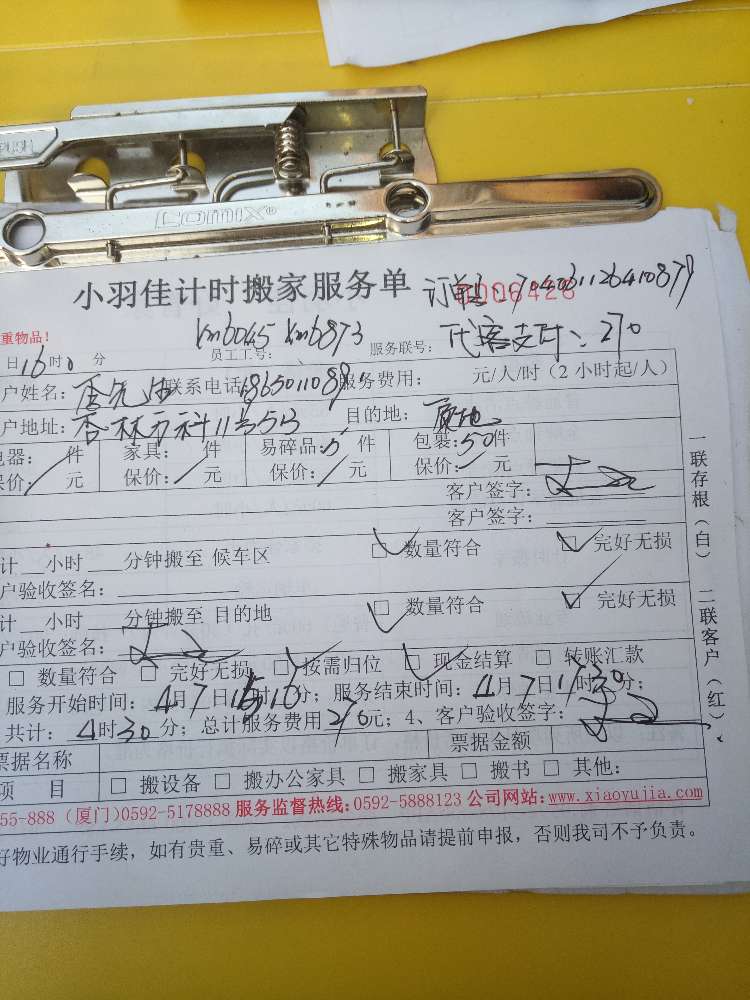 PUSH
COMIX®
小羽佳计时搬家服务单 订单号:70406112641087? 0006428
重物品!
km6045 km6873 代客支付:270
日16时0分 员工工号: 服务联号:
户姓名: 先生 联系电话: 服务费用: 元/人/时(2小时起/人)
户地址:杏林 科11号513 目的地:原地
电器: 件 家具: 件 易碎品:5件 包装:50件
保价: 元 保价: 元 保价: 元 保价: 元
客户签字:
客户签字:
计 小时 分钟搬至 候车区 □ 数量符合 □ 完好无损
户验收签名:
计 小时 分钟搬至 目的地 □ 数量符合 □ 完好无损
户验收签名:
□ 数量符合 □ 完好无损 □ 按需归位 □ 现金结算 □ 转账汇款
服务开始时间:4月7日 时10分;服务结束时间:4月7日17时30分;
共计:4时30分;总计服务费用270元;4、客户验收签字:
票据名称 票据金额
项 目 □ 搬设备 □ 搬办公家具 □ 搬家具 □ 搬书 □ 其他:
55-888 (厦门)0592-5178888 服务监督热线:0592-5888123 公司网站:www.xiaoyujia.com
好物业通行手续,如有贵重、易碎或其它特殊物品请提前申报,否则我司不予负责。
一联存根(白) 二联客户(红)